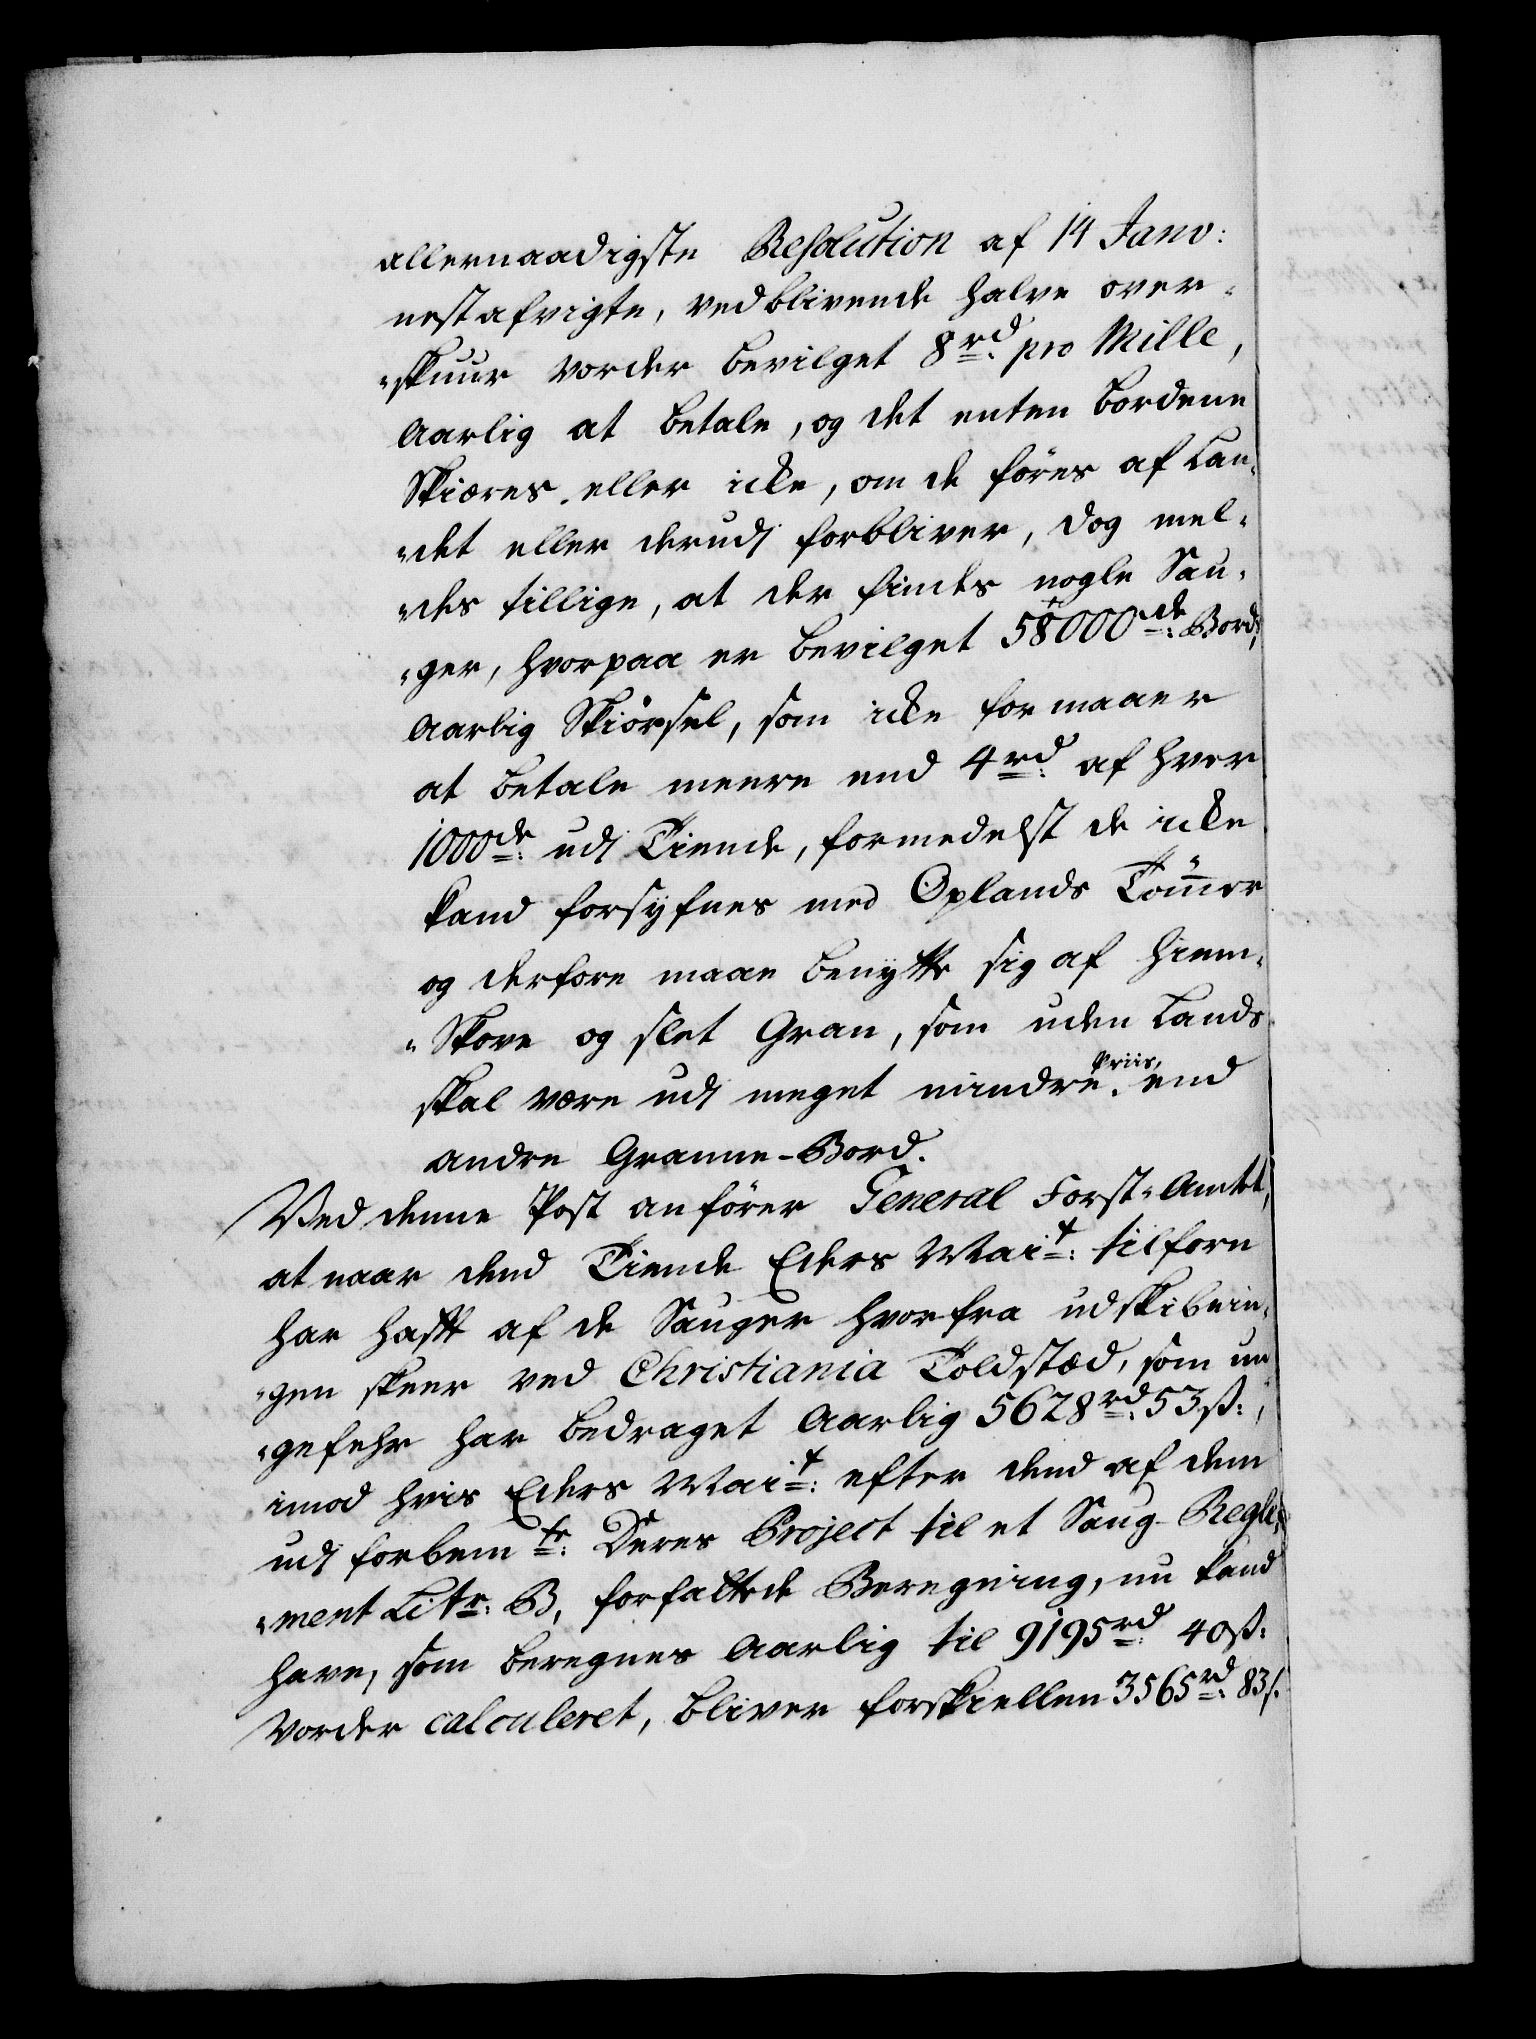 allernaadigste Resolution af 14 Janv:
nestafvigte, vedblivende halve over-
"skuur vorder bevilget 8rd: pro Mille,
Aarlig at betale, og det enten bordene
Skiæres eller icke, om de föres af Lan-
"det eller derudj forbliver, dog mel-
"des tillige, at der findes nogle Sau-
"ger, hvorpaa er bevilget 58000de: Bord,
Aarlig Skiörsel, som icke formaaer
at betale meere end 4rd: af hver
1000de: udj Tiende, formedelst de icke
kand forsyfnes med Oplands Tömer
og derfore maae benytte sig af Hiem-
"Skove og slet Gran, som uden Lands
skal være udj meget mindre Priis, end
andre Granne-Bord.
Ved denne Post anförer General Forst-Amtet,
at naar dend Tiende Eders Mait: tilforn
har hafft af de Sauger hvorfra udskibnin-
"gen skeer ved Christiania Toldstæd, som un-
"gefehr har bedraget Aarlig 5628rd: 53ß:,
imod hvis Eders Mait: efter dend af dem
udj forbemte: Deres Project til et Saug-Regle-
"ment Litr: B, forfattede Beregning, nu kand
have, som beregnes Aarlig til 9195rd: 40ß:
vorder calculeret, bliver forskiellen 3565rd: 83ß.